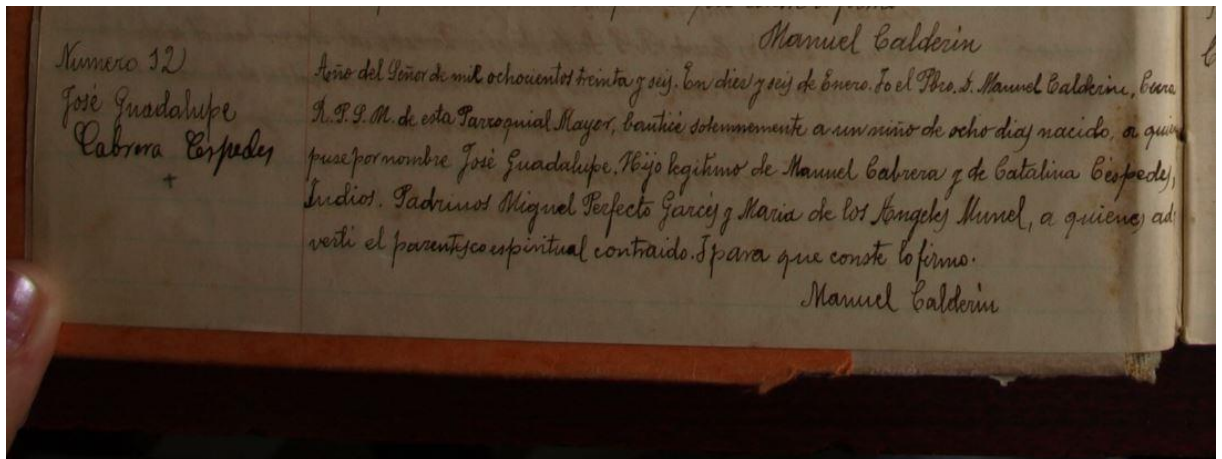 Manuel Calderin
Numero 32
José Guadalupe
Cabrera Cespedes
+
Año del Señor de mil ochocientos treinta y seis. En dies y seis de Enero. Yo el Pbro. D. Manuel Calderin, Cura
R.P.P.M. de esta Parroquial Mayor, bauticé solemnemente a un niño de ocho dias nacido, a quien
puse por nombre José Guadalupe. Hijo legitimo de Manuel Cabrera y de Catalina Céspedes,
Indios. Padrinos Miguel Perfecto Garcés y Maria de los Angeles Munel, a quienes ad
verti el parentesco espiritual contraido. I para que conste lo firmo.
Manuel Calderin